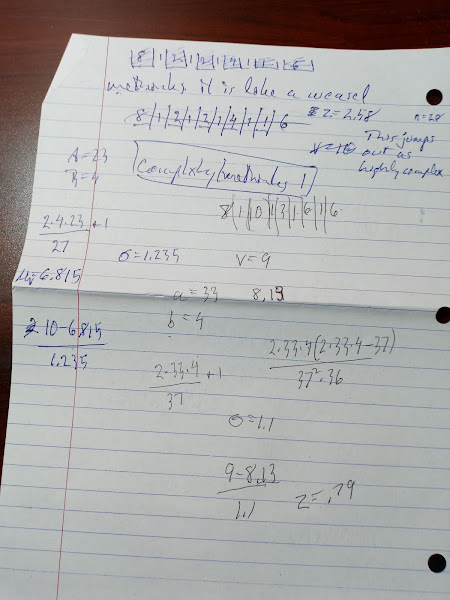 8 | 1 | 2 | 1 | 2 | 1 | 4 | 1 | 1 | 6
methinks it is like a weasel
8 | 1 | 2 | 1 | 2 | 1 | 4 | 1 | 1 | 6
z = 2.58 n=28
This jumps
out as
highly complex
A = 23
B = 4
Complexity (methinks 1)
8 | 1 | 10 | 1 | 3 | 1 | 6 | 1 | 6
2·4·23 + 1
27
σ = 1.235 V = 9
μ = 6.815
a = 33 8.13
b = 4
10 - 6.815
1.235
2·33·4 (2·33·4 - 37)
37²·36
2·33·4 + 1
37
σ = 1.1
9 - 8.13
1.1
z = .79